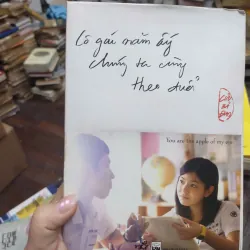 Cô gái năm ấy
chúng ta cùng
theo đuổi
You are the apple of my eye